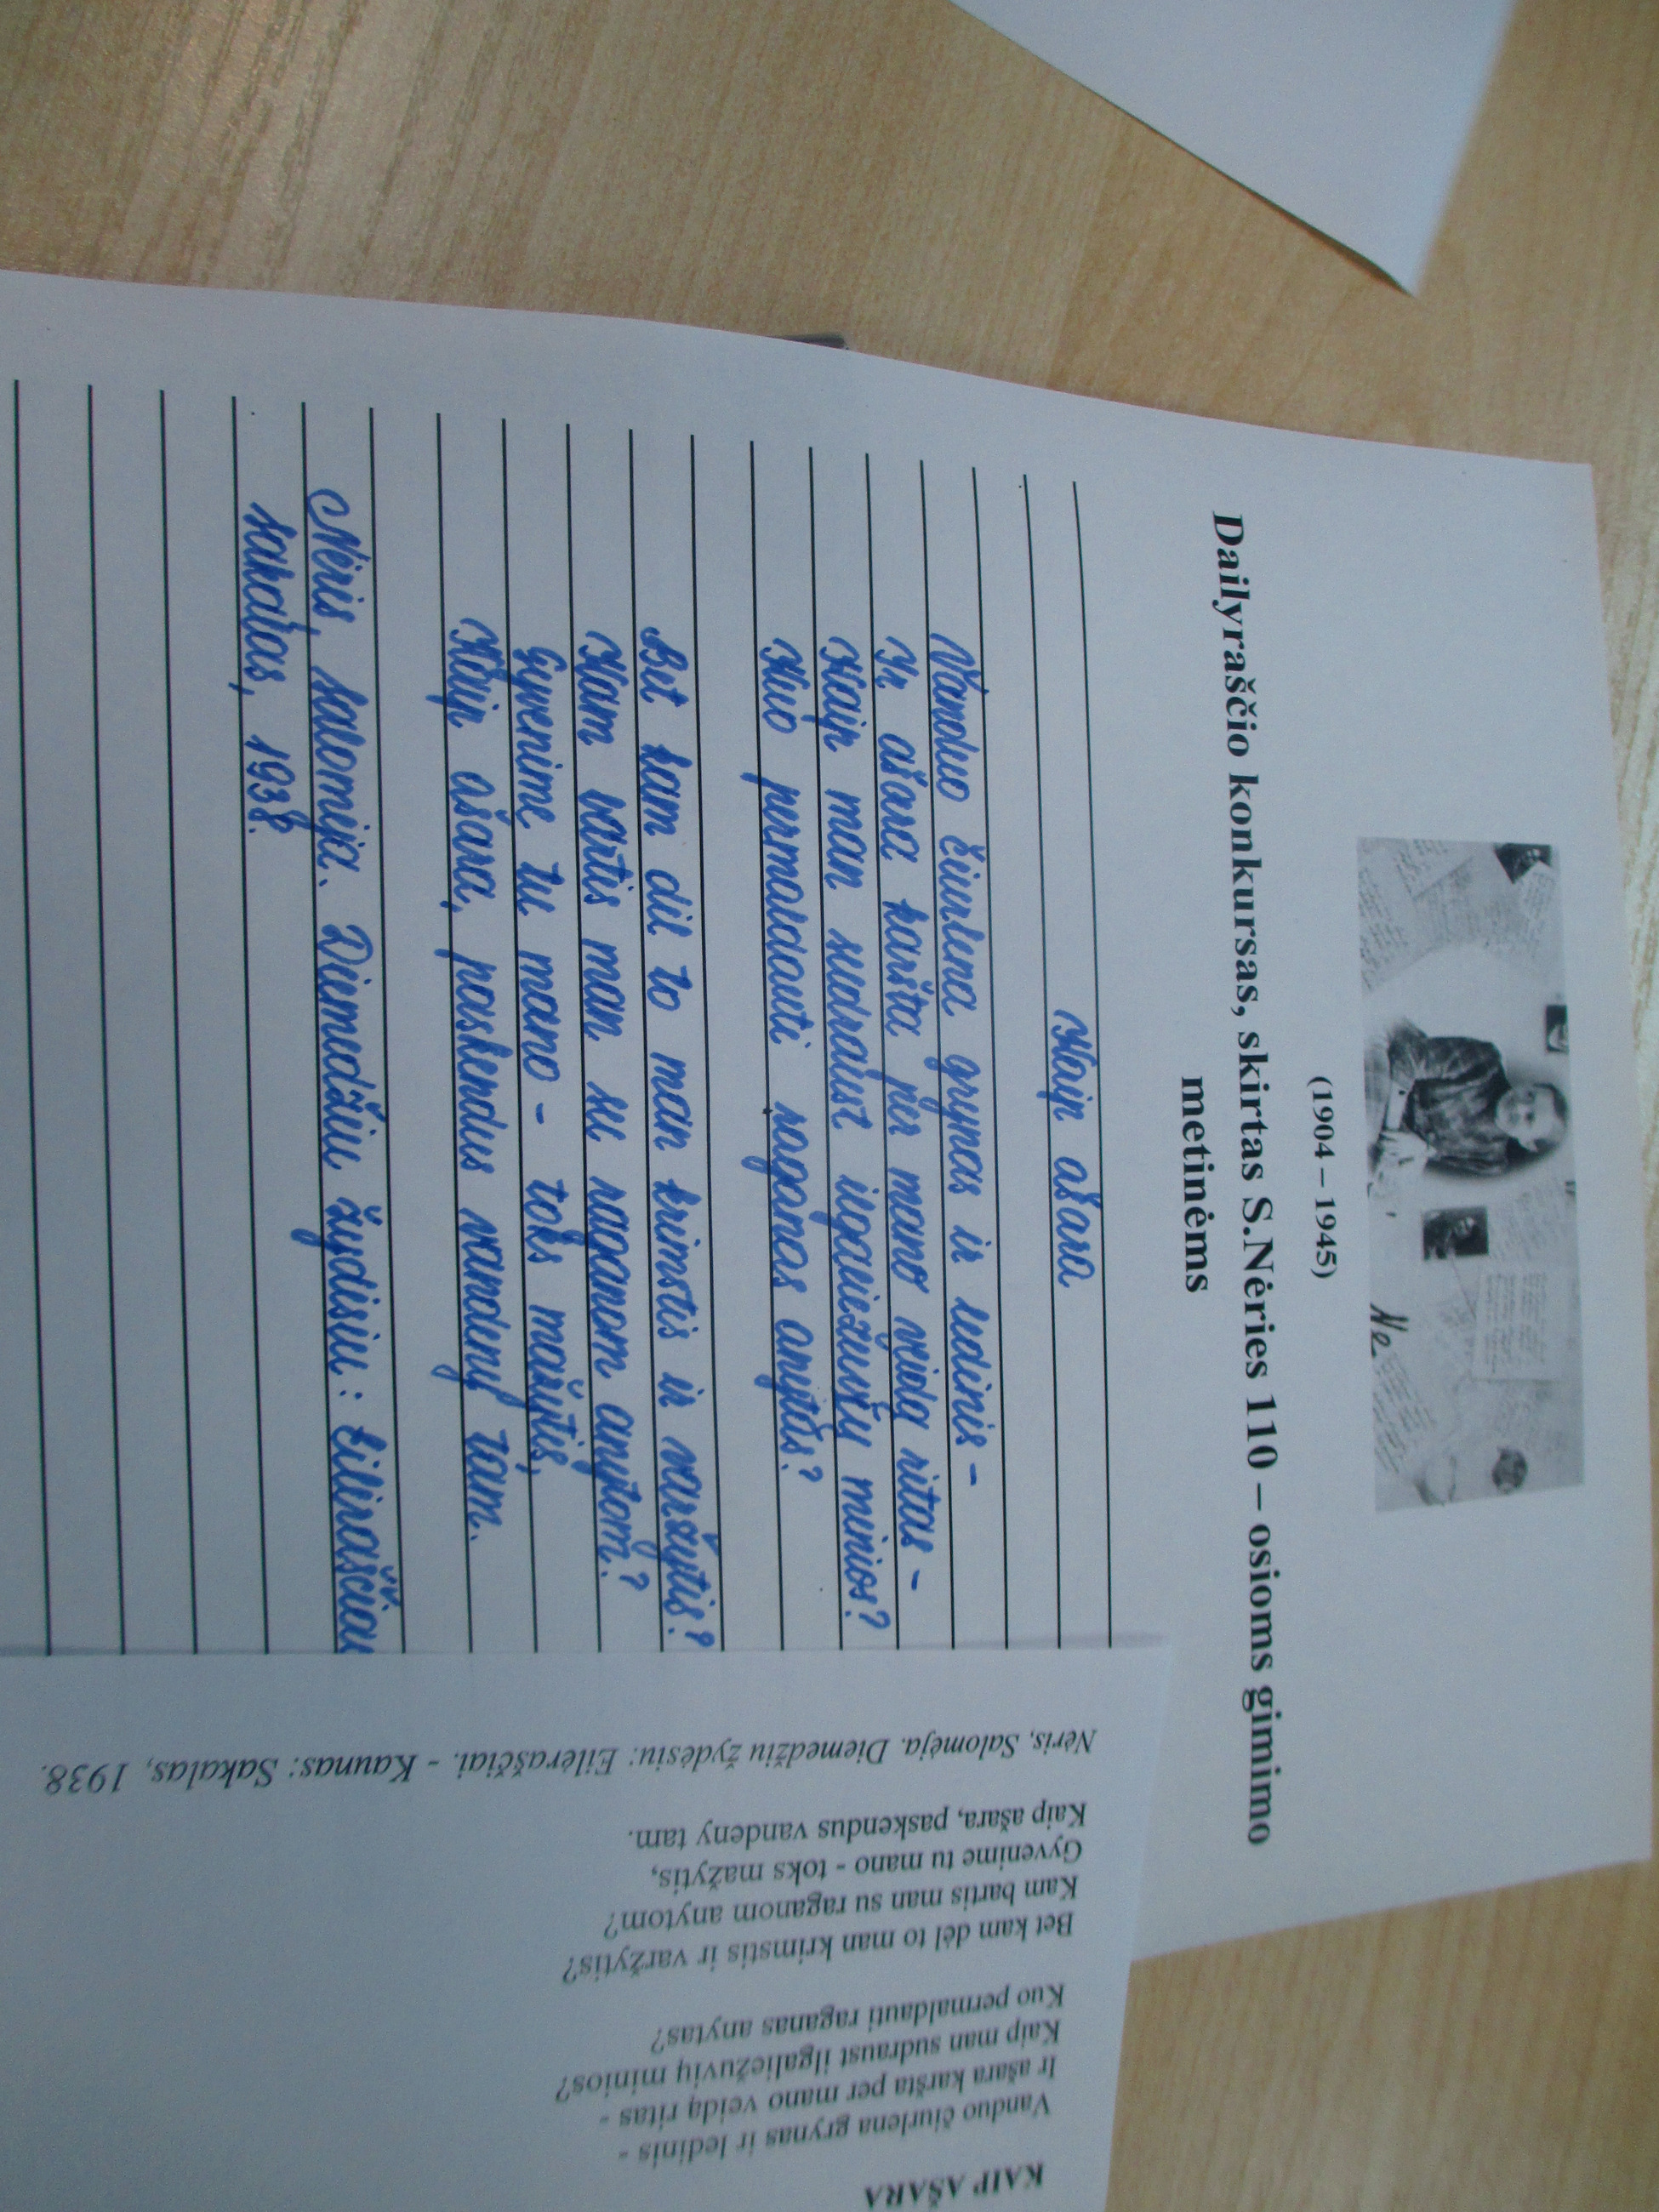 Ne
(1904 – 1945)
Dailyraščio konkursas, skirtas S.Nėries 110 – osioms gimimo
metinėms
Kaip ašara
Vanduo čiurlena grynas ir ledinis -
Ir ašara karšta per mano veidą ritas -
Kaip man sudraust ilgaliežuvių minios?
Kuo permaldauti raganas anytas?
Bet kam dėl to man krimstis ir varžytis?
Kam bartis man su raganom anytom?
Gyvenime tu mano - toks mažytis,
Kaip ašara, paskendus vandeny tam.
Nėris, Salomėja. Diemedžiu žydėsiu: Eilėraščiai
Sakalas, 1938.
KAIP AŠARA
Vanduo čiurlena grynas ir ledinis -
Ir ašara karšta per mano veidą ritas -
Kaip man sudraust ilgaliežuvių minios?
Kuo permaldauti raganas anytas?
Bet kam dėl to man krimstis ir varžytis?
Kam bartis man su raganom anytom?
Gyvenime tu mano - toks mažytis,
Kaip ašara, paskendus vandeny tam.
Nėris, Salomėja. Diemedžiu žydėsiu: Eilėraščiai. - Kaunas: Sakalas, 1938.